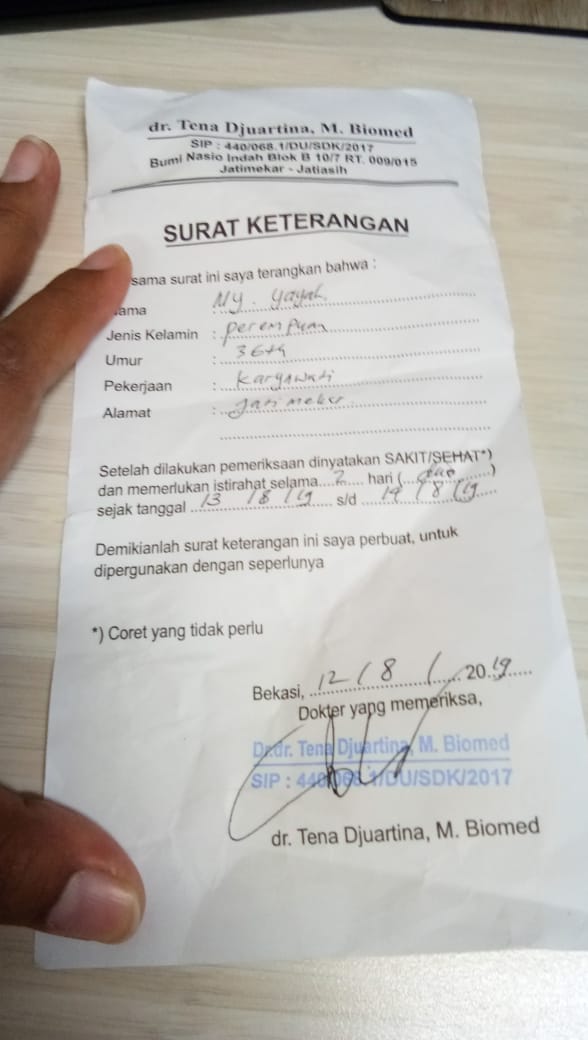 dr. Tena Djuartina, M. Biomed
SIP : 440/068.1/DU/SDK/2017
Bumi Nasio Indah Blok B 10/7 RT. 009/015
Jatimekar - Jatiasih
SURAT KETERANGAN
sama surat ini saya terangkan bahwa :
ama : Ny. Yayah
Jenis Kelamin : perempuan
Umur : 36th
Pekerjaan : Karyawati
Alamat : Jati mekar
Setelah dilakukan pemeriksaan dinyatakan SAKIT/SEHAT*)
dan memerlukan istirahat selama 2 hari ( dua )
sejak tanggal 13 / 8 / 19 s/d 14 / 8 / 19
Demikianlah surat keterangan ini saya perbuat, untuk
dipergunakan dengan seperlunya
*) Coret yang tidak perlu
Bekasi, 12 / 8 / 2019
Dokter yang memeriksa,
Dr.dr. Tena Djuartina, M. Biomed
SIP : 440/068.1/DU/SDK/2017
dr. Tena Djuartina, M. Biomed